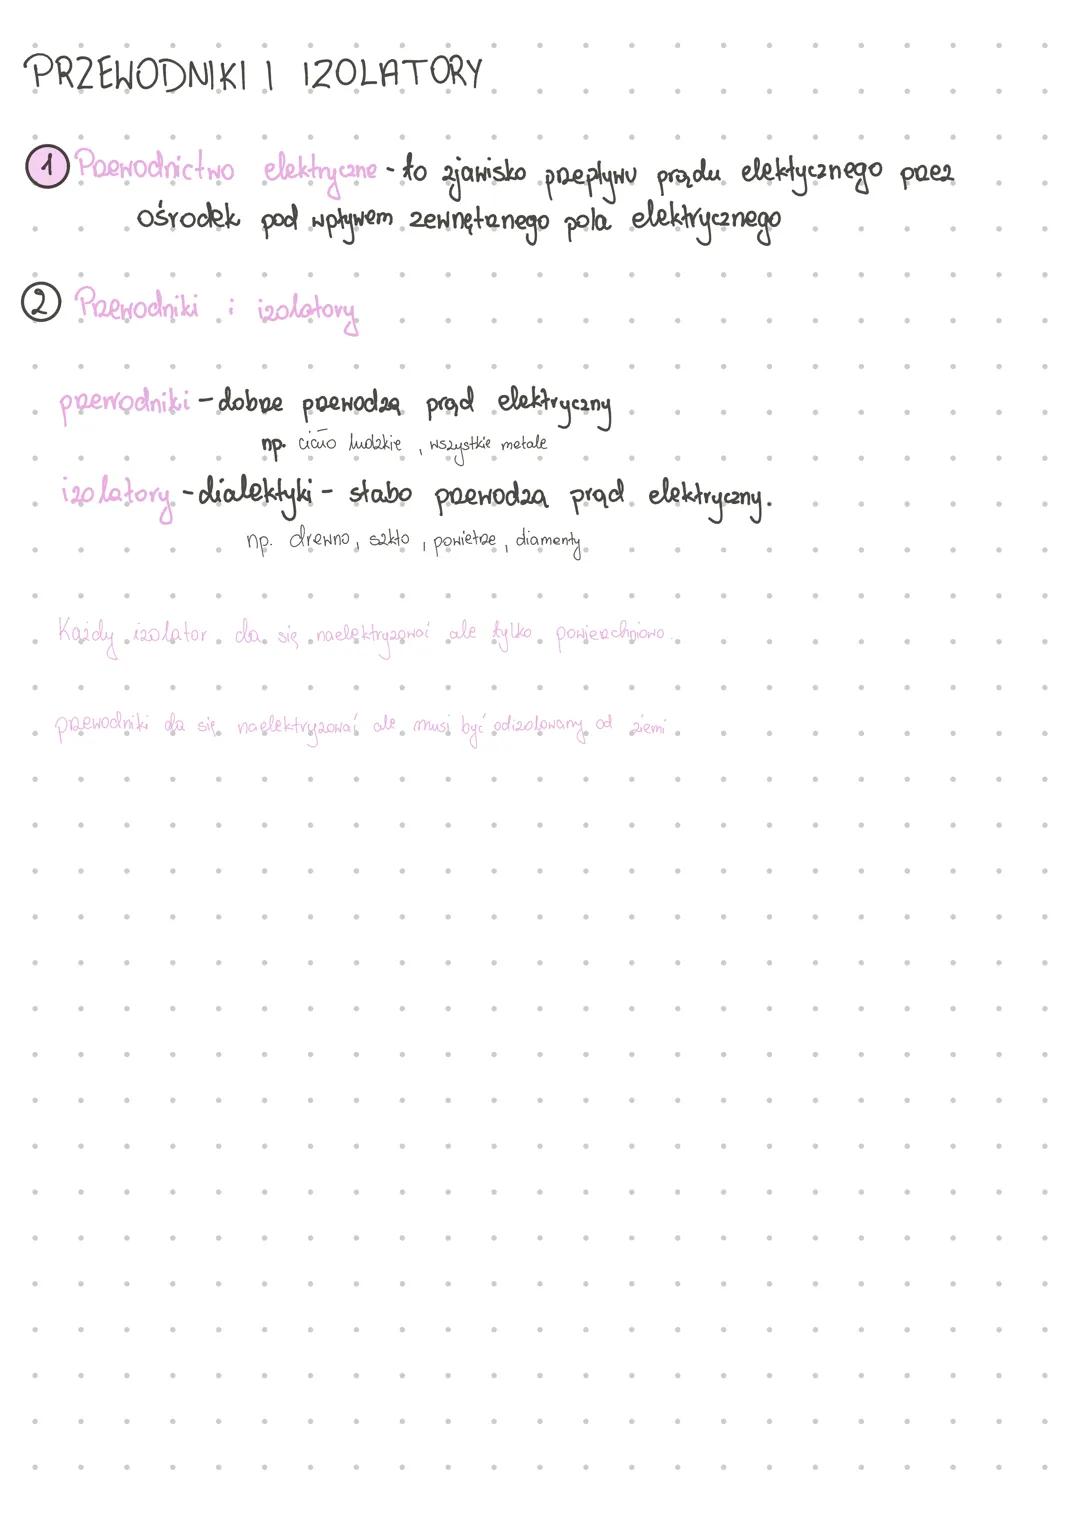 PRZEWODNIKI I IZOLATORY
1 Przewodnictwo elektryczne - to zjawisko przepływu prądu elektycznego przez
ośrodek pod wpływem zewnętrznego pola elektrycznego
2 Przewodniki i izolatory
przewodniki - dobrze przewodzą prąd elektryczny
np. ciało ludzkie, wszystkie metale
izolatory - dialektyki - słabo przewodzą prąd elektryczny.
np. drewno, szkło, powietrze, diamenty
Każdy izolator da się naelektryzować ale tylko powierzchniowo.
przewodniki da się naelektryzować ale musi być odizolowany od ziemi